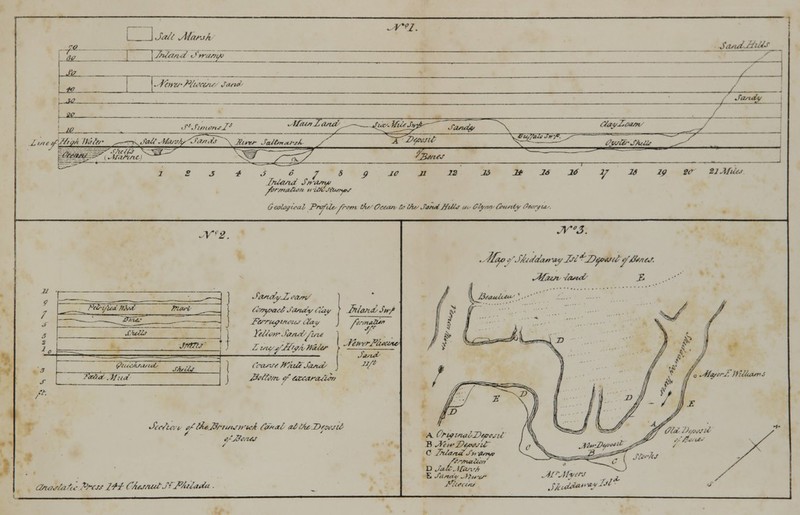 Nº1.
Salt Marsh
Inland Swamp
Newer Pliocene Sand
Sand Hills
70
60
50
40
30
20
10
Sandy
Line of High Water
St Simons Id
Main Land
Six Mile Swp
Sandy
Clay Loam
Salt Marsh
Sands
River Saltmarsh
A Deposit
Buffalo Swp.
Oyster Shells
Ocean
Shells
(Marine)
Bones
1 2 3 4 5 6 7 8 9 10 11 12 13 14 15 16 17 18 19 20 21 Miles
Inland Swamp
formation with Stumps
Geological Profile from the Ocean to the Sand Hills in Glynn County Georgia.
Nº2.
Petrified Wood
Marl
Bones
Shells
Quicksand
Shells
Fetid Mud
ft.
Sandy Loam
Compact Sandy Clay
Ferruginous Clay
Yellow Sand fine
Line of High Water
Coarse White Sand
Bottom of excavation
Inland Swp
formation
Newer Pliocene
Sand
Section of the Brunswick Canal at the Deposit
of Bones
Anastatic Press 144 Chesnut St Philada.
Nº3.
Map of Skiddaway Isld Deposit of Bones.
Main land
E
Beaulieu
Vernon River
Skiddaway River
D
Major E. Williams
E
D
E
D
D
A
Old Deposit
of Bones
New Deposit
B
C
C
Stocks
A Original Deposit
B New Deposit
C Inland Swamp
Formation
D Salt Marsh
E Sandy Newer
Pliocene
Mr Myers
Skiddaway Isld